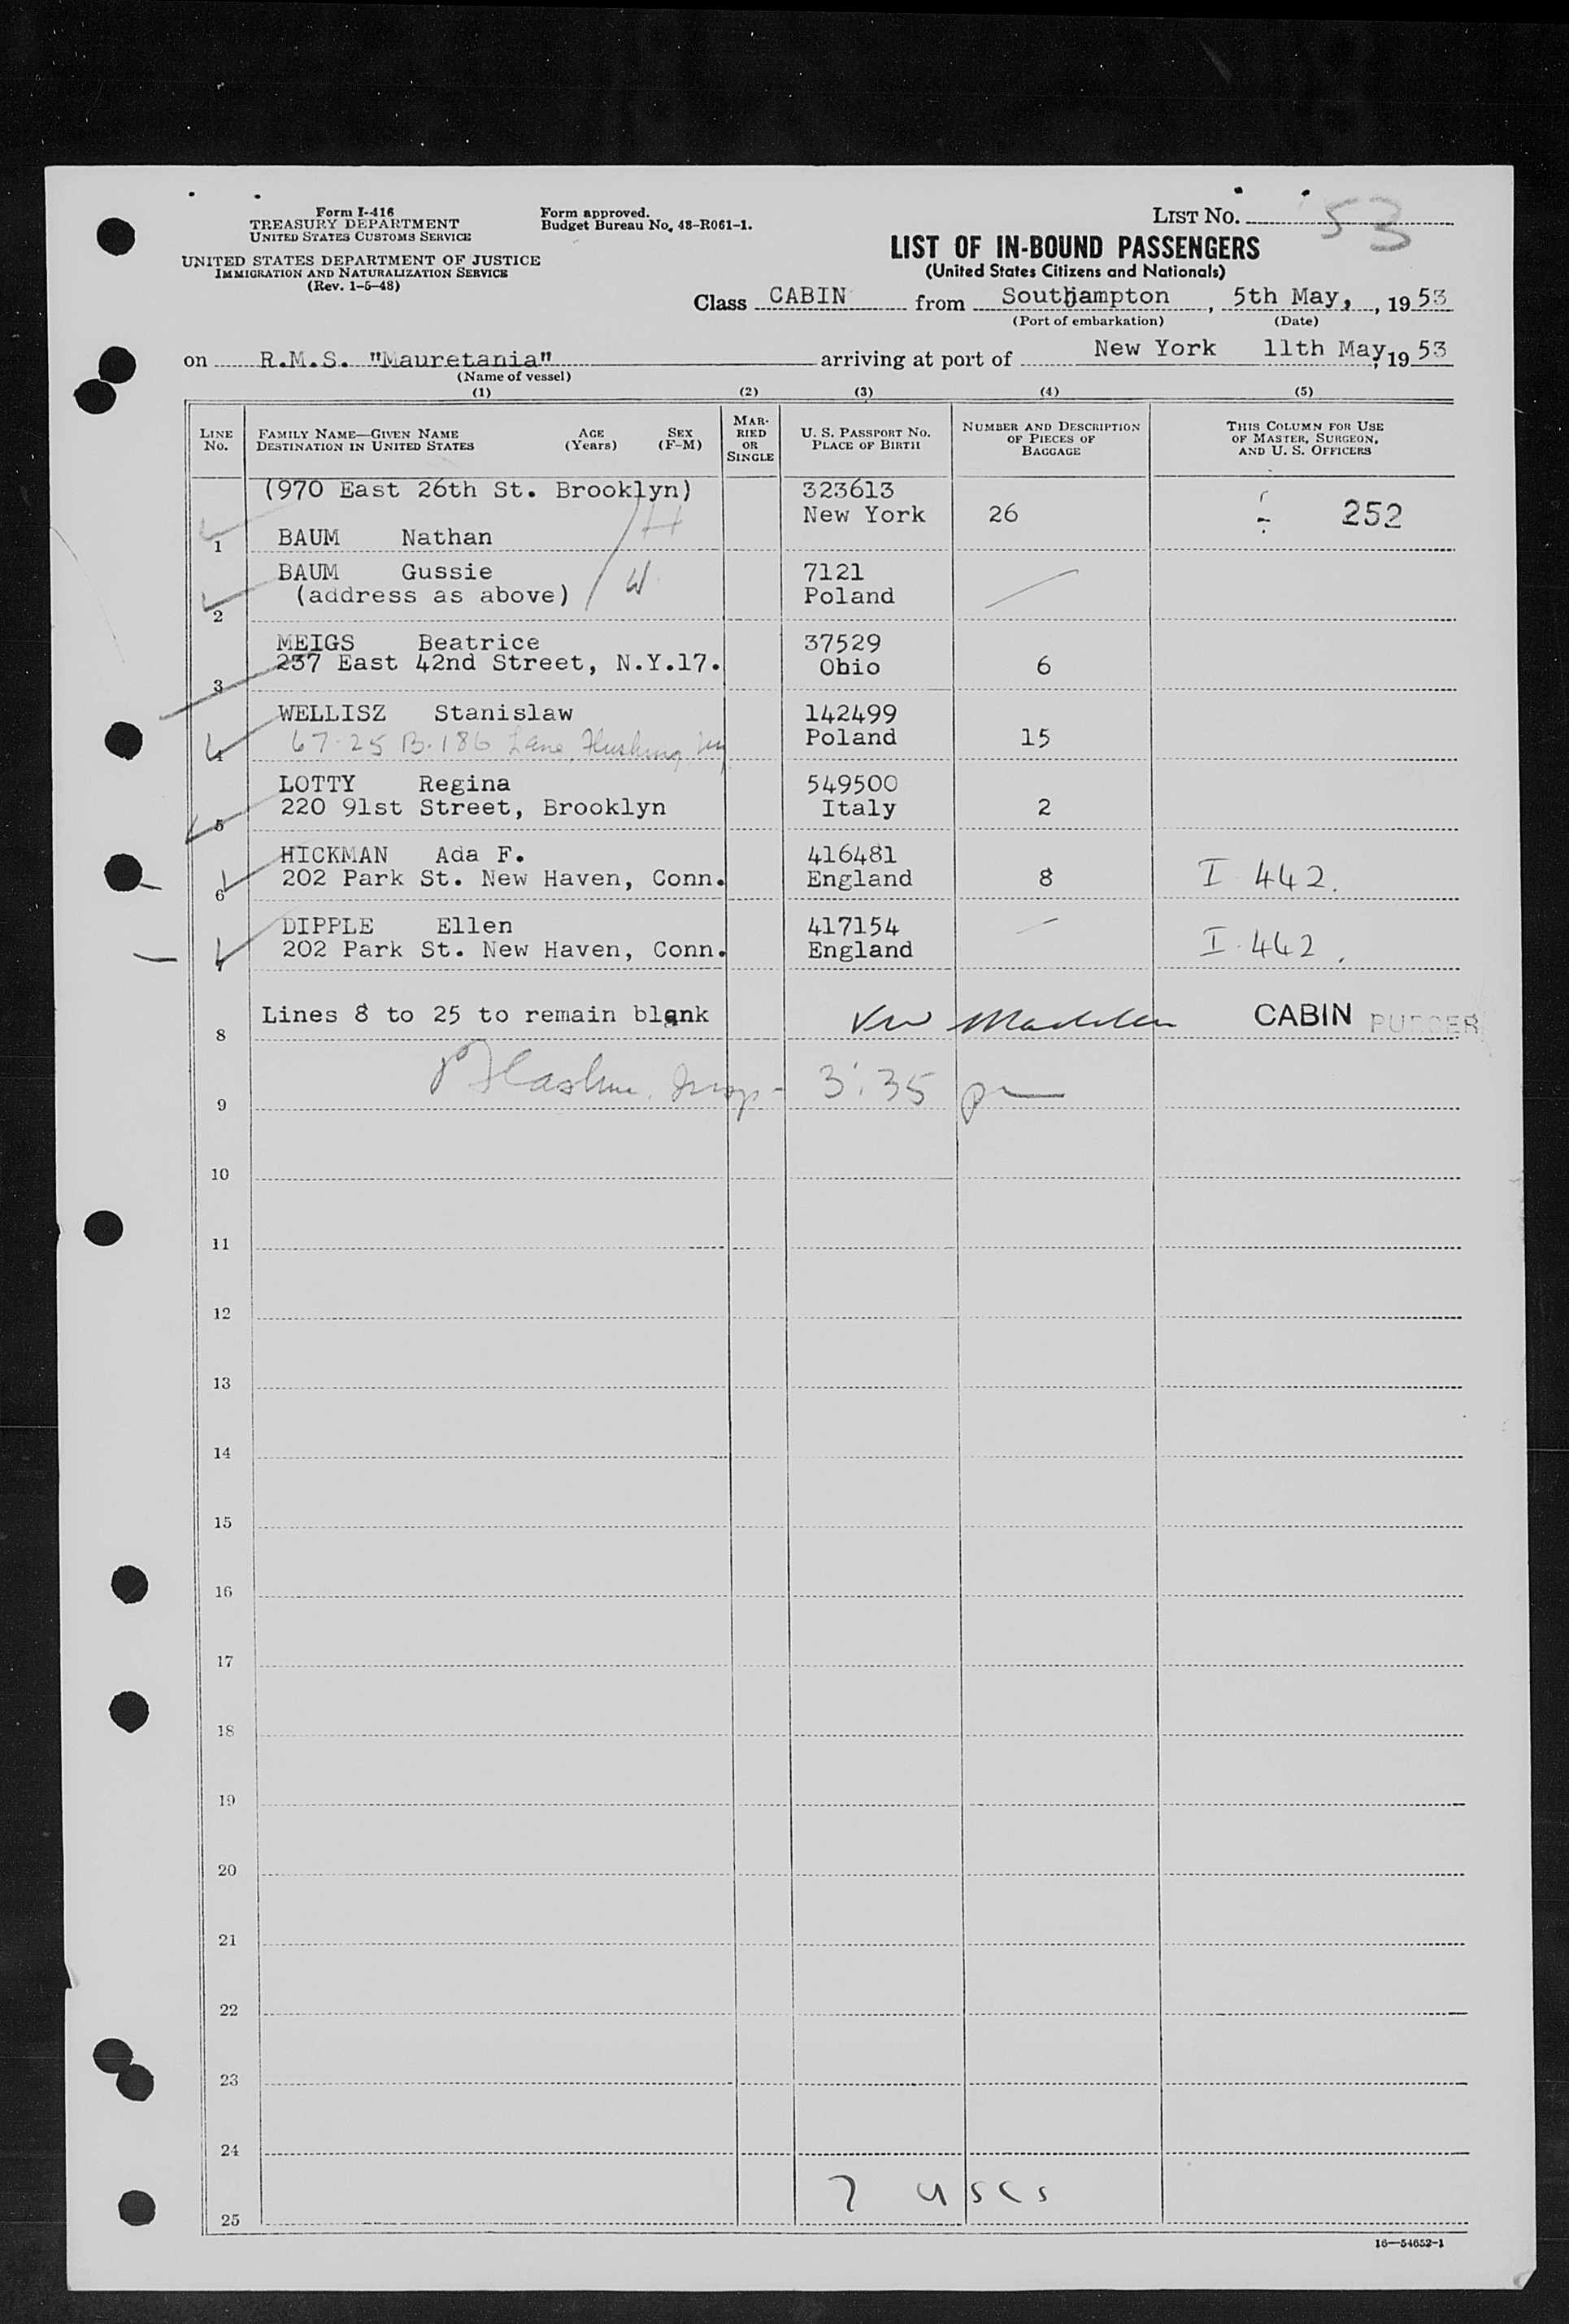 Form I-416
TREASURY DEPARTMENT
UNITED STATES CUSTOMS SERVICE
UNITED STATES DEPARTMENT OF JUSTICE
IMMIGRATION AND NATURALIZATION SERVICE
(Rev. 1-5-48)
Form approved.
Budget Bureau No. 43-R061-1.
LIST NO. 53
LIST OF IN-BOUND PASSENGERS
(United States Citizens and Nationals)
Class CABIN from Southampton, 5th May, , 1953
(Port of embarkation) (Date)
on R.M.S. "Mauretania" arriving at port of New York 11th May, 1953
(Name of vessel)
(1) (2) (3) (4) (5)
LINE NO. FAMILY NAME—GIVEN NAME DESTINATION IN UNITED STATES AGE (Years) SEX (F-M) MARRIED OR SINGLE U. S. PASSPORT NO. PLACE OF BIRTH NUMBER AND DESCRIPTION OF PIECES OF BAGGAGE THIS COLUMN FOR USE OF MASTER, SURGEON, AND U. S. OFFICERS
(970 East 26th St. Brooklyn) 323613
New York 26 252
1 BAUM Nathan H
BAUM Gussie 7121
(address as above) W Poland
2
MEIGS Beatrice 37529
237 East 42nd Street, N.Y.17. Ohio 6
3
WELLISZ Stanislaw 142499
4 67-25 B. 186 Lane, Flushing, NY Poland 15
LOTTY Regina 549500
220 91st Street, Brooklyn Italy 2
5
HICKMAN Ada F. 416481
202 Park St. New Haven, Conn. England 8 I 442.
6
DIPPLE Ellen 417154
202 Park St. New Haven, Conn. England I-442.
7
Lines 8 to 25 to remain blank CABIN PURSER
8
Insp- 3:35 pm
9
10
11
12
13
14
15
16
17
18
19
20
21
22
23
24
7 USCs
25
16—54652-1